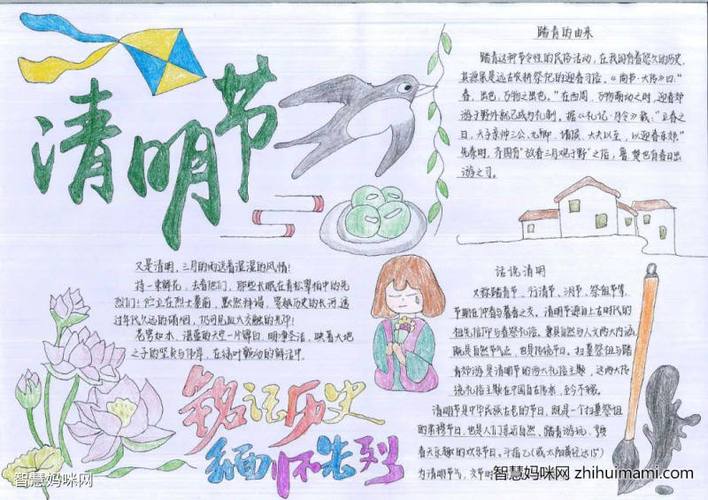 清明节
踏青的由来
踏青这种节令性的民俗活动，在我国有着悠久的历史，
其源泉是远古农耕祭祀的迎春习俗。《尚书·大传》曰："
春，出也，万物之出也。"在西周，万物萌动之时，迎春郊
游于野外就已成为礼制。据《礼记·月令》载："立春之
日，天子亲帅三公、九卿、诸侯、大夫以至，以迎春东郊。"
先秦时，齐国有"放春三月观于野"之俗，鲁、楚也有春日出
游之习。
又是清明，三月的雨送着湿湿的风情！
持一束鲜花，去看他们，那些长眠在青松翠柏中的先
烈们！伫立在烈士墓前，默然祥谒，穿越历史的长河透
过年代久远的硝烟，仍可见血火交融的光华！
花雾如水，温蛋的天空一片鲜白，明净圣洁，映着大地
之子的坚贞与伟岸，在绿叶颤动的鲜活中。
话说清明
又称踏青节、行清节、三月节、祭祖节等，
节期在仲春与暮春之交。清明节源自上古时代的
祖先信仰与春祭礼俗，兼具自然与人文两大内涵，
既是自然节气点，也是传统节日。扫墓祭祖与踏
青郊游是清明节的两大礼俗主题，这两大传
统礼俗主题在中国自古传承，至今不辍。
清明节是中华民族古老的节日，既是一个扫墓祭祖
的肃穆节日，也是人们亲近自然、踏青游玩、享受
春天乐趣的欢乐节日。斗指乙(或太阳黄经达15°)
为清明节气，交节时
铭记历史
缅怀先烈
智慧妈咪网
智慧妈咪网 zhihuimami.com